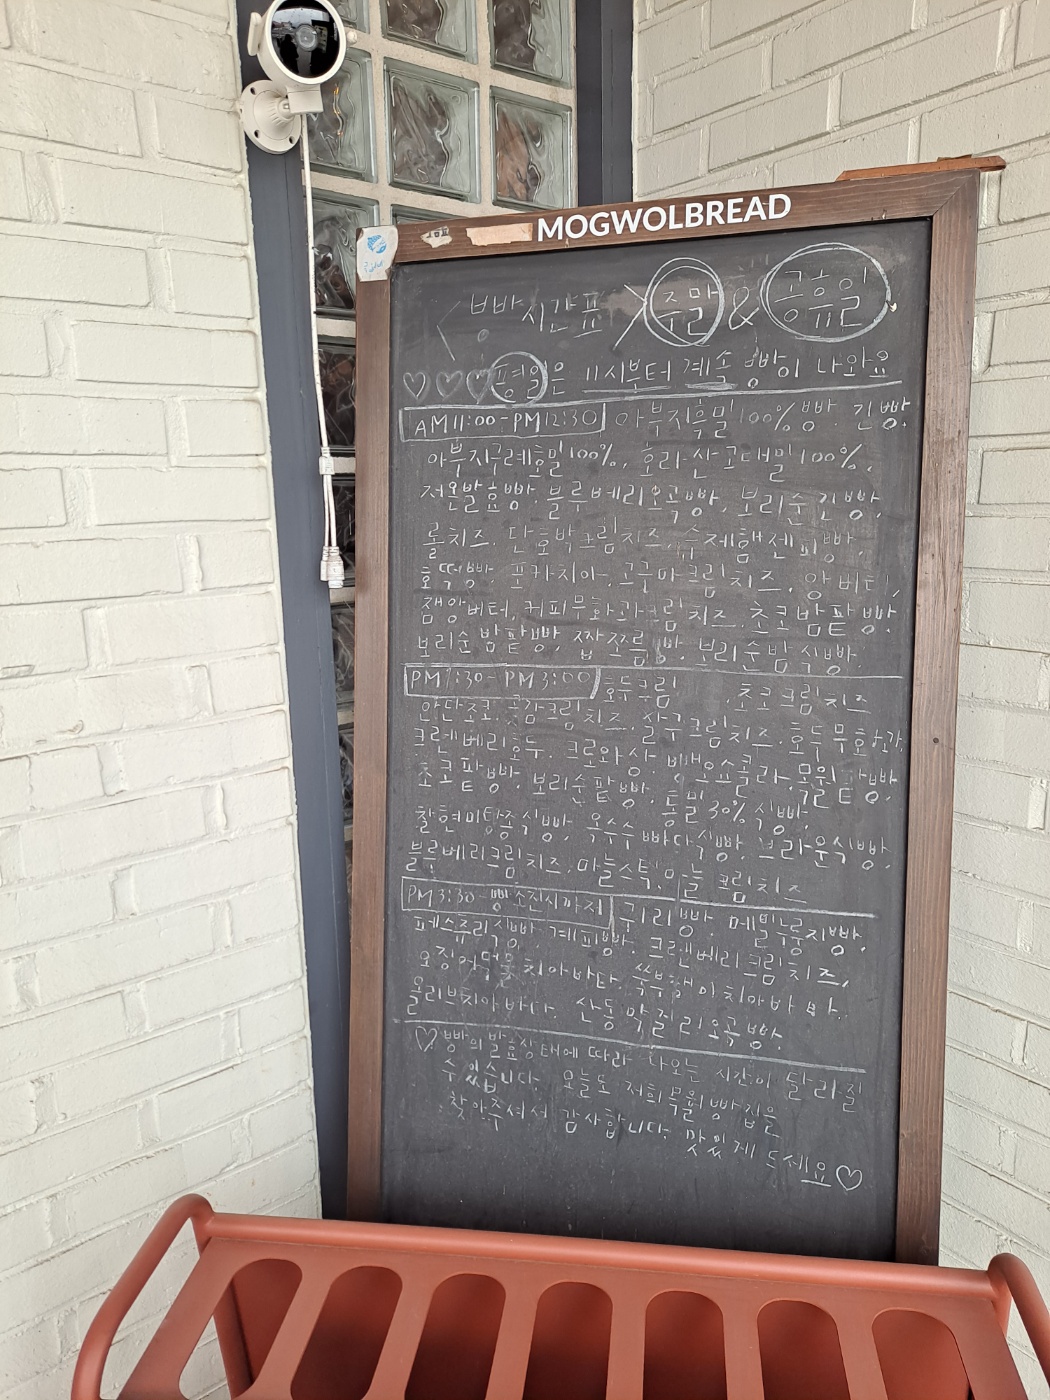 MOGWOLBREAD
<빵 시간표> 주말 & 공휴일
♡♡♡평일은 11시부터 계속 빵이 나와요
AM11:00-PM12:30 아부지흑밀100%빵. 긴빵.
아부지구레호밀100%, 호라산고대밀100%.
저온발효빵. 블루베리오곡빵. 보리순긴빵,
롤치즈. 단호박크림치즈. 수제햄젠피빵.
호떡빵. 포카치아. 고구마크림치즈. 앙버터,
잼앙버터. 커피무화과크림치즈. 초코밤팥빵.
보리순밤팥빵, 짭쪼름빵. 보리순밤식빵.
PM1:30-PM3:00 호두크림 초코크림치즈
안단조코. 곶감크림치즈. 살구크림치즈. 호두무화과.
크렌베리호두. 크로와상. 뺑오쇼콜라. 목월단팥빵.
초코팥빵. 보리순팥빵. 통밀30%식빵.
찰현미탕종식빵, 옥수수빠다식빵. 브라운식빵,
블루베리크림치즈. 마늘스틱. 마늘크림치즈
PM3:30-빵소진시까지 귀리빵. 메밀누룽지빵.
페스츄리식빵. 계피빵. 크랜베리크림치즈,
오징어먹물치아바타. 쑥부쟁이치아바타.
올리브치아바타. 산동막걸리오곡빵.
♡빵의 발효상태에 따라 나오는 시간이 달라질
수 있습니다. 오늘도 저희 목월빵집을
찾아주셔서 감사합니다. 맛있게 드세요♡